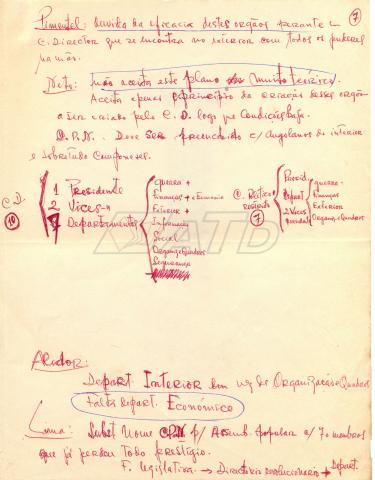 7
Pimentel: duvida da eficacia destes orgãos perante o
C. Director que se encontra no interior com todos os poderes
na mão.
Neto: não aceita este plano muito teórico.
Aceita apenas o principio da criação desses orgãos
a ser criado pelo C.D. logo que condições haja.
C.P.N. - Deve ser preenchido c/ Angolanos do interior
e sobretudo camponeses.
C.D.
10
1 Presidente
2 Vices-
7 Departamentos
guerra +
Finanças + e Economia
Exterior +
Informação
Social
Organiz. e Quadros
Segurança
C. Politico
restrito
7
Presid.
Depart.
2 Vices
guerra
Finanças
Exterior
Organiz. e Quadros
ATD
Depart. Interior em vez de Organização e Quadros
falta depart. Económico
Lima: Subst. Nome p/ Assemb. popular c/ 70 membros
que já perdeu todo prestígio.
F. legislativa. → Directório revolucionário → Depart.